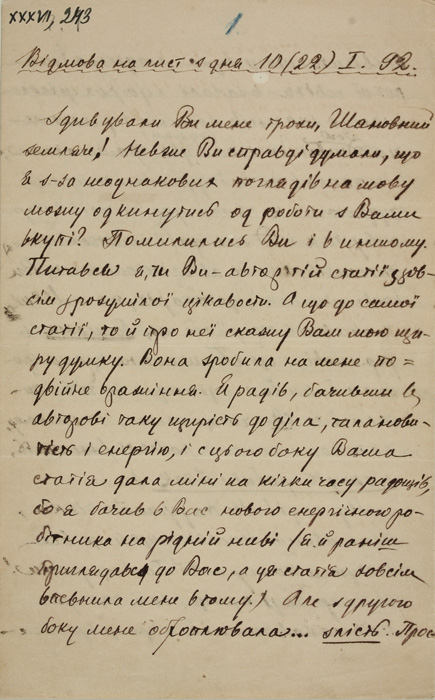 XXXVI, 243
1
Відмова на лист з дня 10 (22) I. 92.
Здивували Ви мене трохи, Шановний
земляче! Невже Ви справді думали, що
я з-за неоднакових поглядів на мову
можу одкинутись од роботи з Вами
вкупі? Помилились Ви і в иншому.
Питавсь я, чи Ви – автор тій статії з зов-
сім зрозумілої цікавости. А що до самої
статії, то й про неї скажу Вам мою щи-
ру думку. Вона зробила на мене по-
двійне вражіння. Я радів, бачивши в
авторові таку щирість до діла, таланови-
тість і енергію, і з цього боку Ваша
статія дала міні на кілки часу радощів,
бо я бачив в Вас нового енергічного ро-
бітника на рідній ниві (я й раніш
приглядавсь до Вас, а ця статія зовсім
впевнила мене в тому.) Але з другого
боку мене охоплювала... злість. Прос